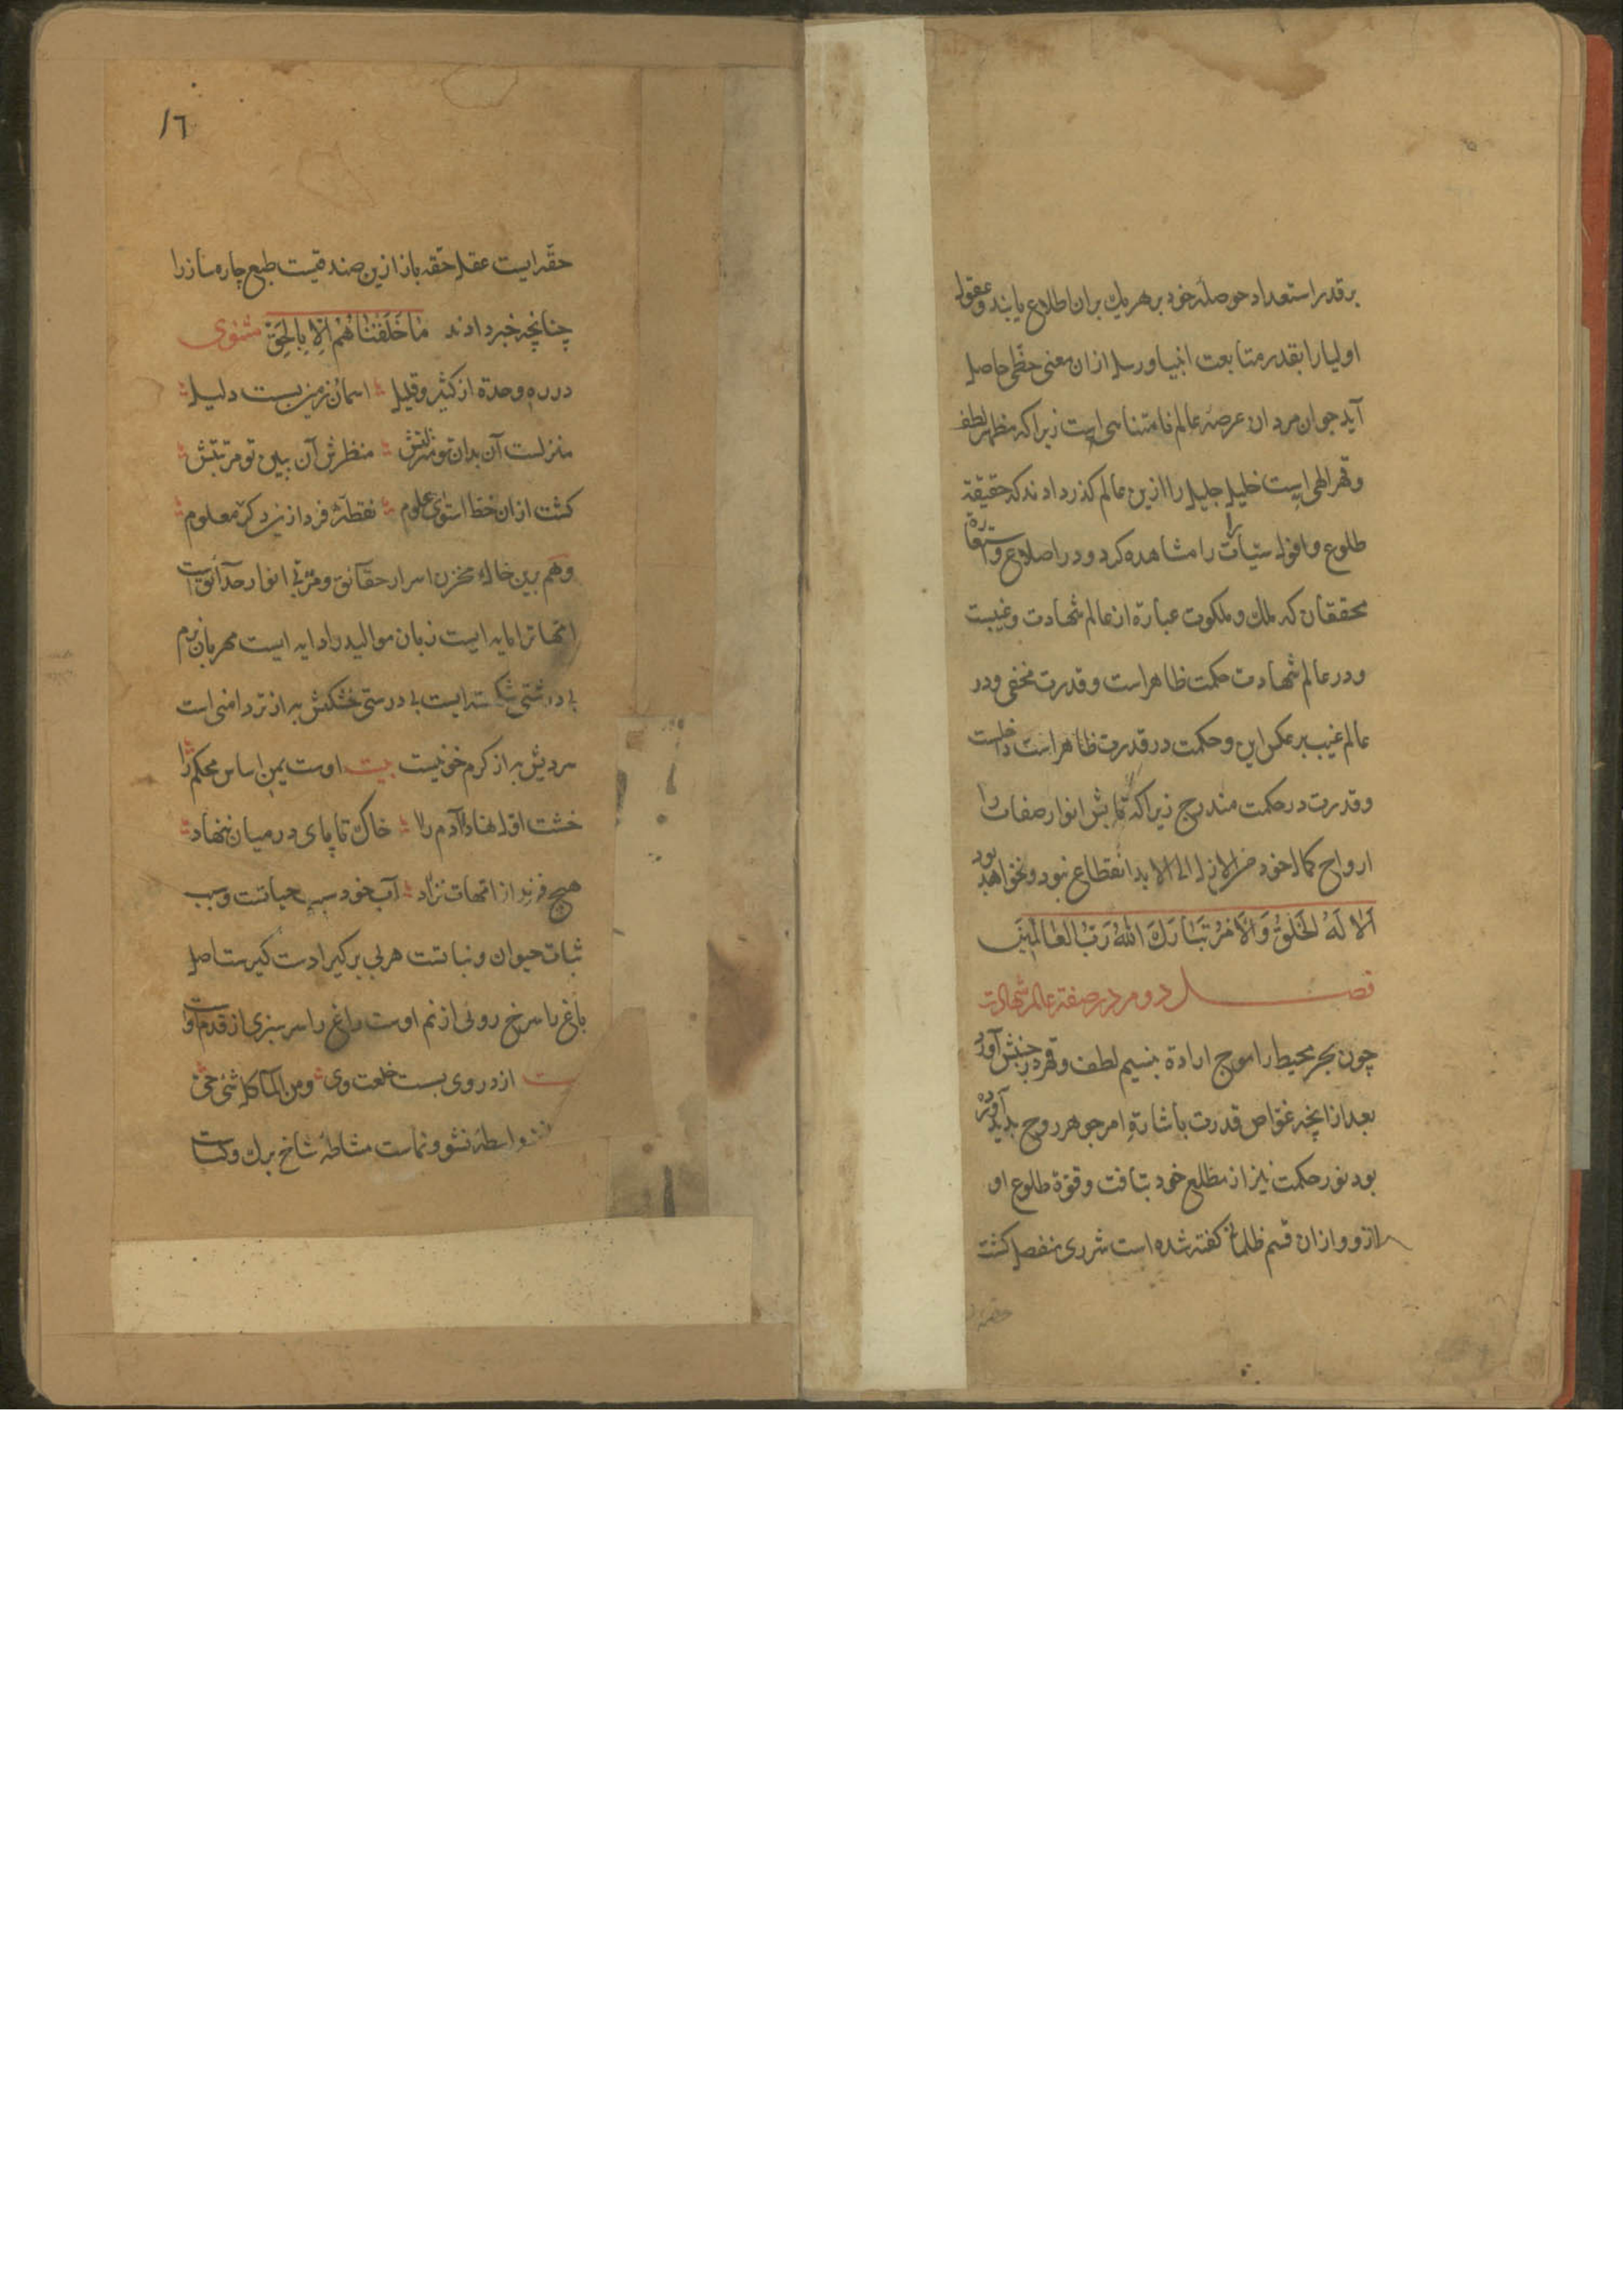 بر قدر استعداد حوصلهٔ خود بر هر یك بران اطلاع یابند و عقول
اولیا را بقدر متابعت انبیا و رسل ازان معنی حظّی حاصل
آید جوان مردان عرصهٔ عالم نامتناهی است زیرا که مظهر لطف
و قهر الهی است خلیل جلیل را ازین عالم گذر دادند که حقیقة
طلوع و افول را مشاهده کرد و در اصلاع
محققان که ملك و ملکوت عبارة از عالم شهادت و غیبست
و در عالم شهادت حکمت ظاهر است و قدرت مخفی و در
عالم غیب بر عکس این و حکمت در قدرت ظاهر است
و قدرت در حکمت مندرج زیرا که تابش انوار صفات را
ارواح کمال خود من الازل الی الابد انقطاع نبود و نخواهد بود
اَلا لَهُ الخَلقُ وَالاَمرُ تَبٰارَكَ اللّٰهُ رَبُّ العٰالَمینَ
فصل دوم در صفة عالم شهادت
چون بحر محیط را موج ارادة بنسیم لطف و قهر در جنبش آورد
بعد ازانچه غوّاص قدرت باشارةِ امر جوهر روح پدید آورده
بود نور حکمت نیز از مطلع خود بتافت و قوّة طلوع او
ازو و ازان قسم ظلمانی گفته شده است شرری منفصل کشت
١٦
حقّه ایست عقل حقه باز ازین صند قیست طبع چاره ساز را
چنانچه خبر دادند مٰا خَلَقنٰاهُم اِلّا بِالحَقِّ مثنوی
در ره وحدة از کثیر و قلیل اسمان زمین بست دلیل
منزلست آن بدان تو منزلتش منظرش آن ببین تو مرتبتش
کشت ازان خط استوی علوم نقطهٔ فرد ازین کره معلوم
وهم برین خاك مخزن اسرار حقائق و مربّی انوار حدائق است
امّهات را مایه ایست زبان موالید را دایه ایست مهربان نرم
بی درشتی شکسته ایست بی درستی خشکش به از تر دامنی است
سردیش به از کرم خوئیست بیت اوست یمن اساس محکم را
خشت اوّل نهاد آدم را خاك تا پای در میان ننهاد
هیچ فرزند از امّهات نزاد آب خود سبب حیاتست و سبب
ثبات حیوان و نباتست
باغ را سرخ روئی از نم اوست راغ را سر سبزی از قدم اوست
از در وی بست خلعت وی ومن المآء کل شیٔ حیّ
واسطهٔ نشو و نماست مشاطهٔ شاخ برك و